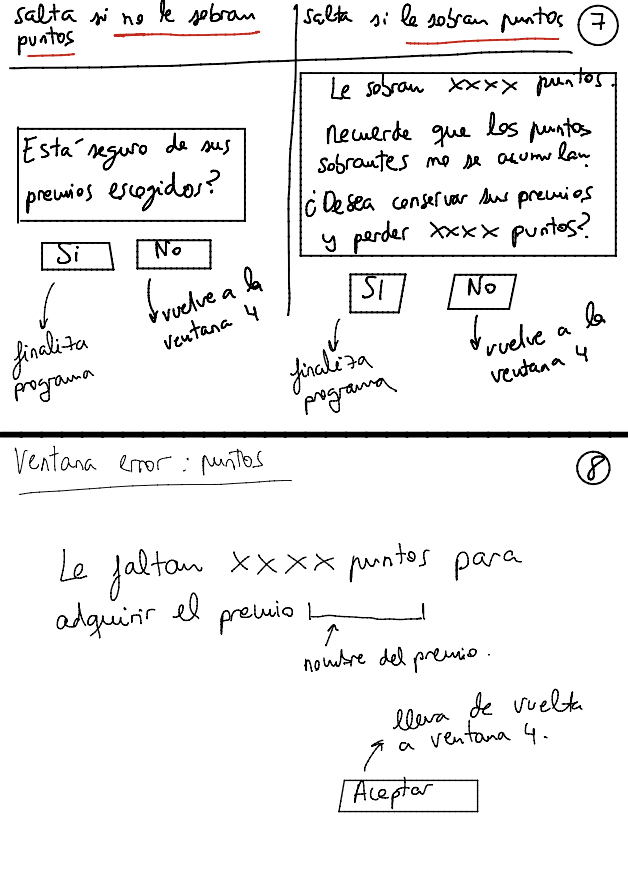 salta si no le sobran
puntos
Está seguro de sus
premios escogidos?
Si
No
finaliza
programa
vuelve a la
ventana 4
salta si le sobran puntos
7
Le sobran xxxx puntos.
Recuerde que los puntos
sobrantes no se acumulan.
¿Desea conservar sus premios
y perder xxxx puntos?
SI
No
finaliza
programa
vuelve a la
ventana 4
Ventana error: puntos
8
Le faltan xxxx puntos para
adquirir el premio
nombre del premio.
lleva de vuelta
a ventana 4.
Aceptar